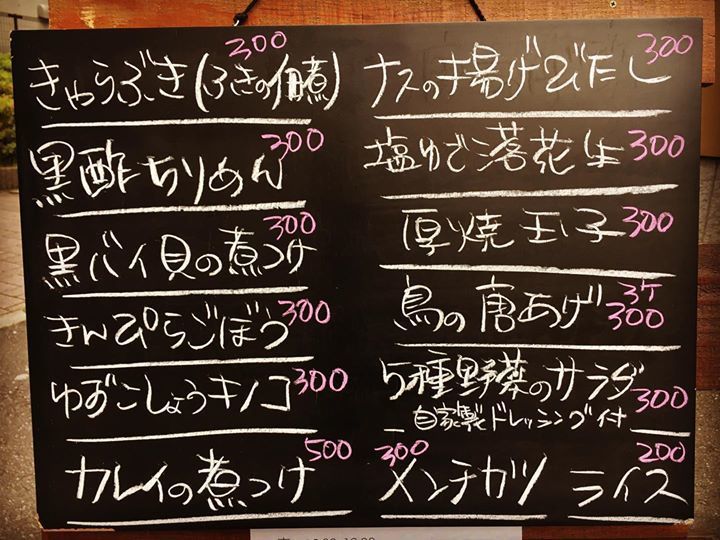 きゃらぶき(ふきの佃煮) 300
黒酢ちりめん 300
黒バイ貝の煮つけ 300
きんぴらごぼう 300
ゆずこしょうキノコ 300
カレイの煮つけ 500
ナスの揚げびたし 300
塩ゆで落花生 300
厚焼玉子 300
鳥の唐あげ 3ケ 300
5種野菜のサラダ 300
自家製ドレッシング付
メンチカツ 300 ライス 200